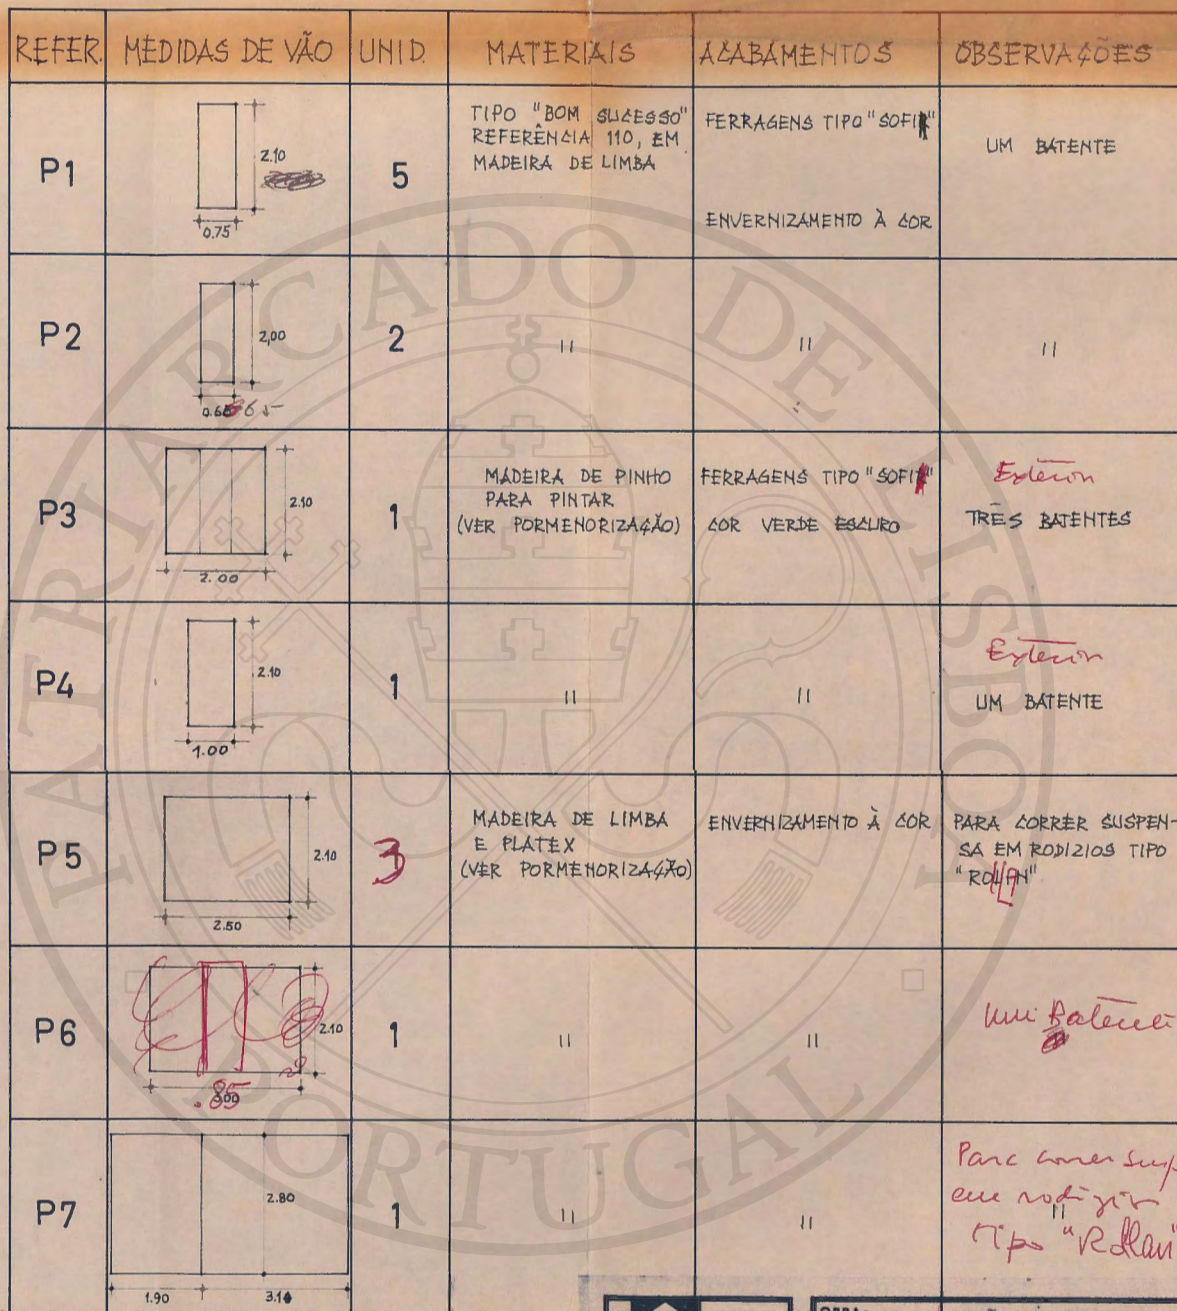 REFER. MEDIDAS DE VÃO UNID. MATERIAIS ACABAMENTOS OBSERVAÇÕES
P1
2.10
0.75
5
TIPO "BOM SUCESSO"
REFERÊNCIA 110, EM
MADEIRA DE LIMBA
FERRAGENS TIPO "SOFI"
ENVERNIZAMENTO À COR
UM BATENTE
P2
2,00
0.6
2
" " "
P3
2.10
2.00
1
MADEIRA DE PINHO
PARA PINTAR
(VER PORMENORIZAÇÃO)
FERRAGENS TIPO "SOFI"
COR VERDE ESCURO
Exterior
TRÊS BATENTES
P4
2.10
1.00
1
" "
Exterior
UM BATENTE
P5
2.10
2.50
3
MADEIRA DE LIMBA
E PLATEX
(VER PORMENORIZAÇÃO)
ENVERNIZAMENTO À COR
PARA CORRER SUSPEN-
SA EM RODIZIOS TIPO
"ROLLAN"
P6
2.10
.85
1
" "
um Batente
P7
2.80
1.90 3.10
1
" " "
Para correr susp
em rodizios
tipo "Rollan"
OBRA:
PATRIARCADO DE LISBOA
PORTUGAL